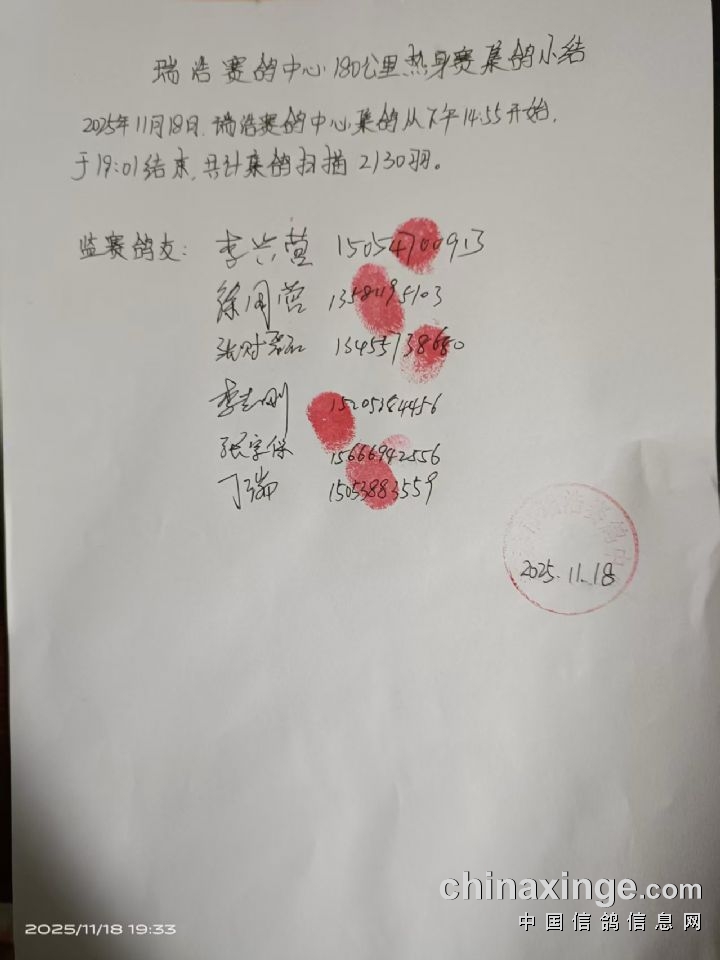 瑞浩赛鸽中心180公里热身赛集鸽小结
2025年11月18日,瑞浩赛鸽中心集鸽从下午14:55开始,
于19:01结束,共计集鸽扫描2130羽。
监赛鸽友: 李兴营 15054700913
徐同营 13581195103
张财 13455738680
李志刚 15205384456
张字保 15666942556
丁瑞 15053883559
瑞浩赛鸽中
2025.11.18
chinaxinge.com
中国信鸽信息网
2025/11/18 19:33